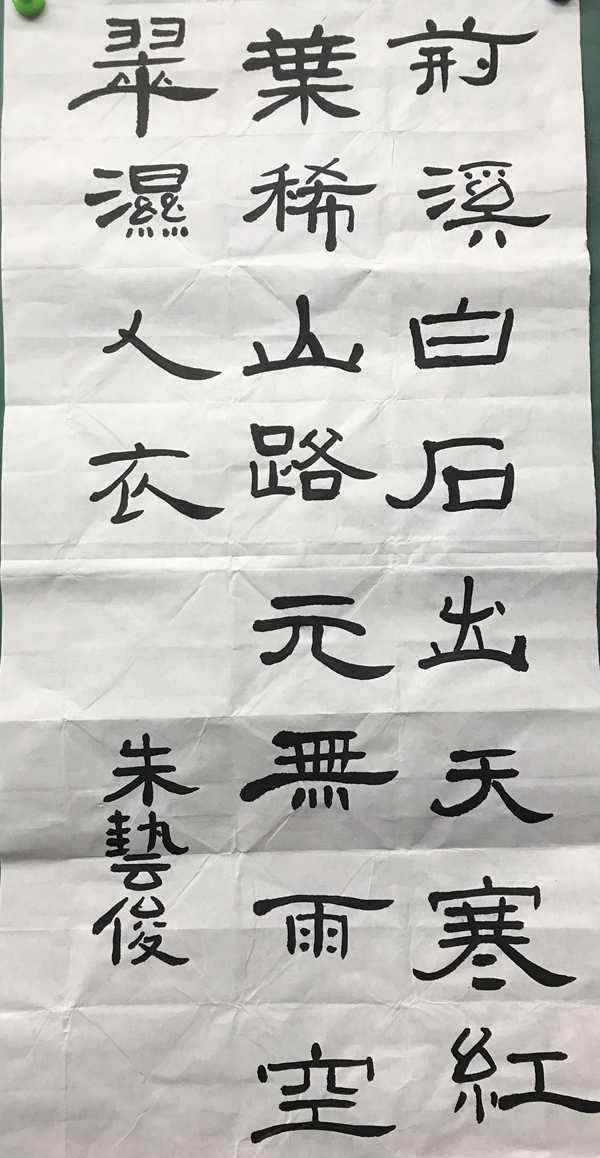 荊溪白石出天寒紅
葉稀山路元無雨空
翠濕人衣
朱藝俊